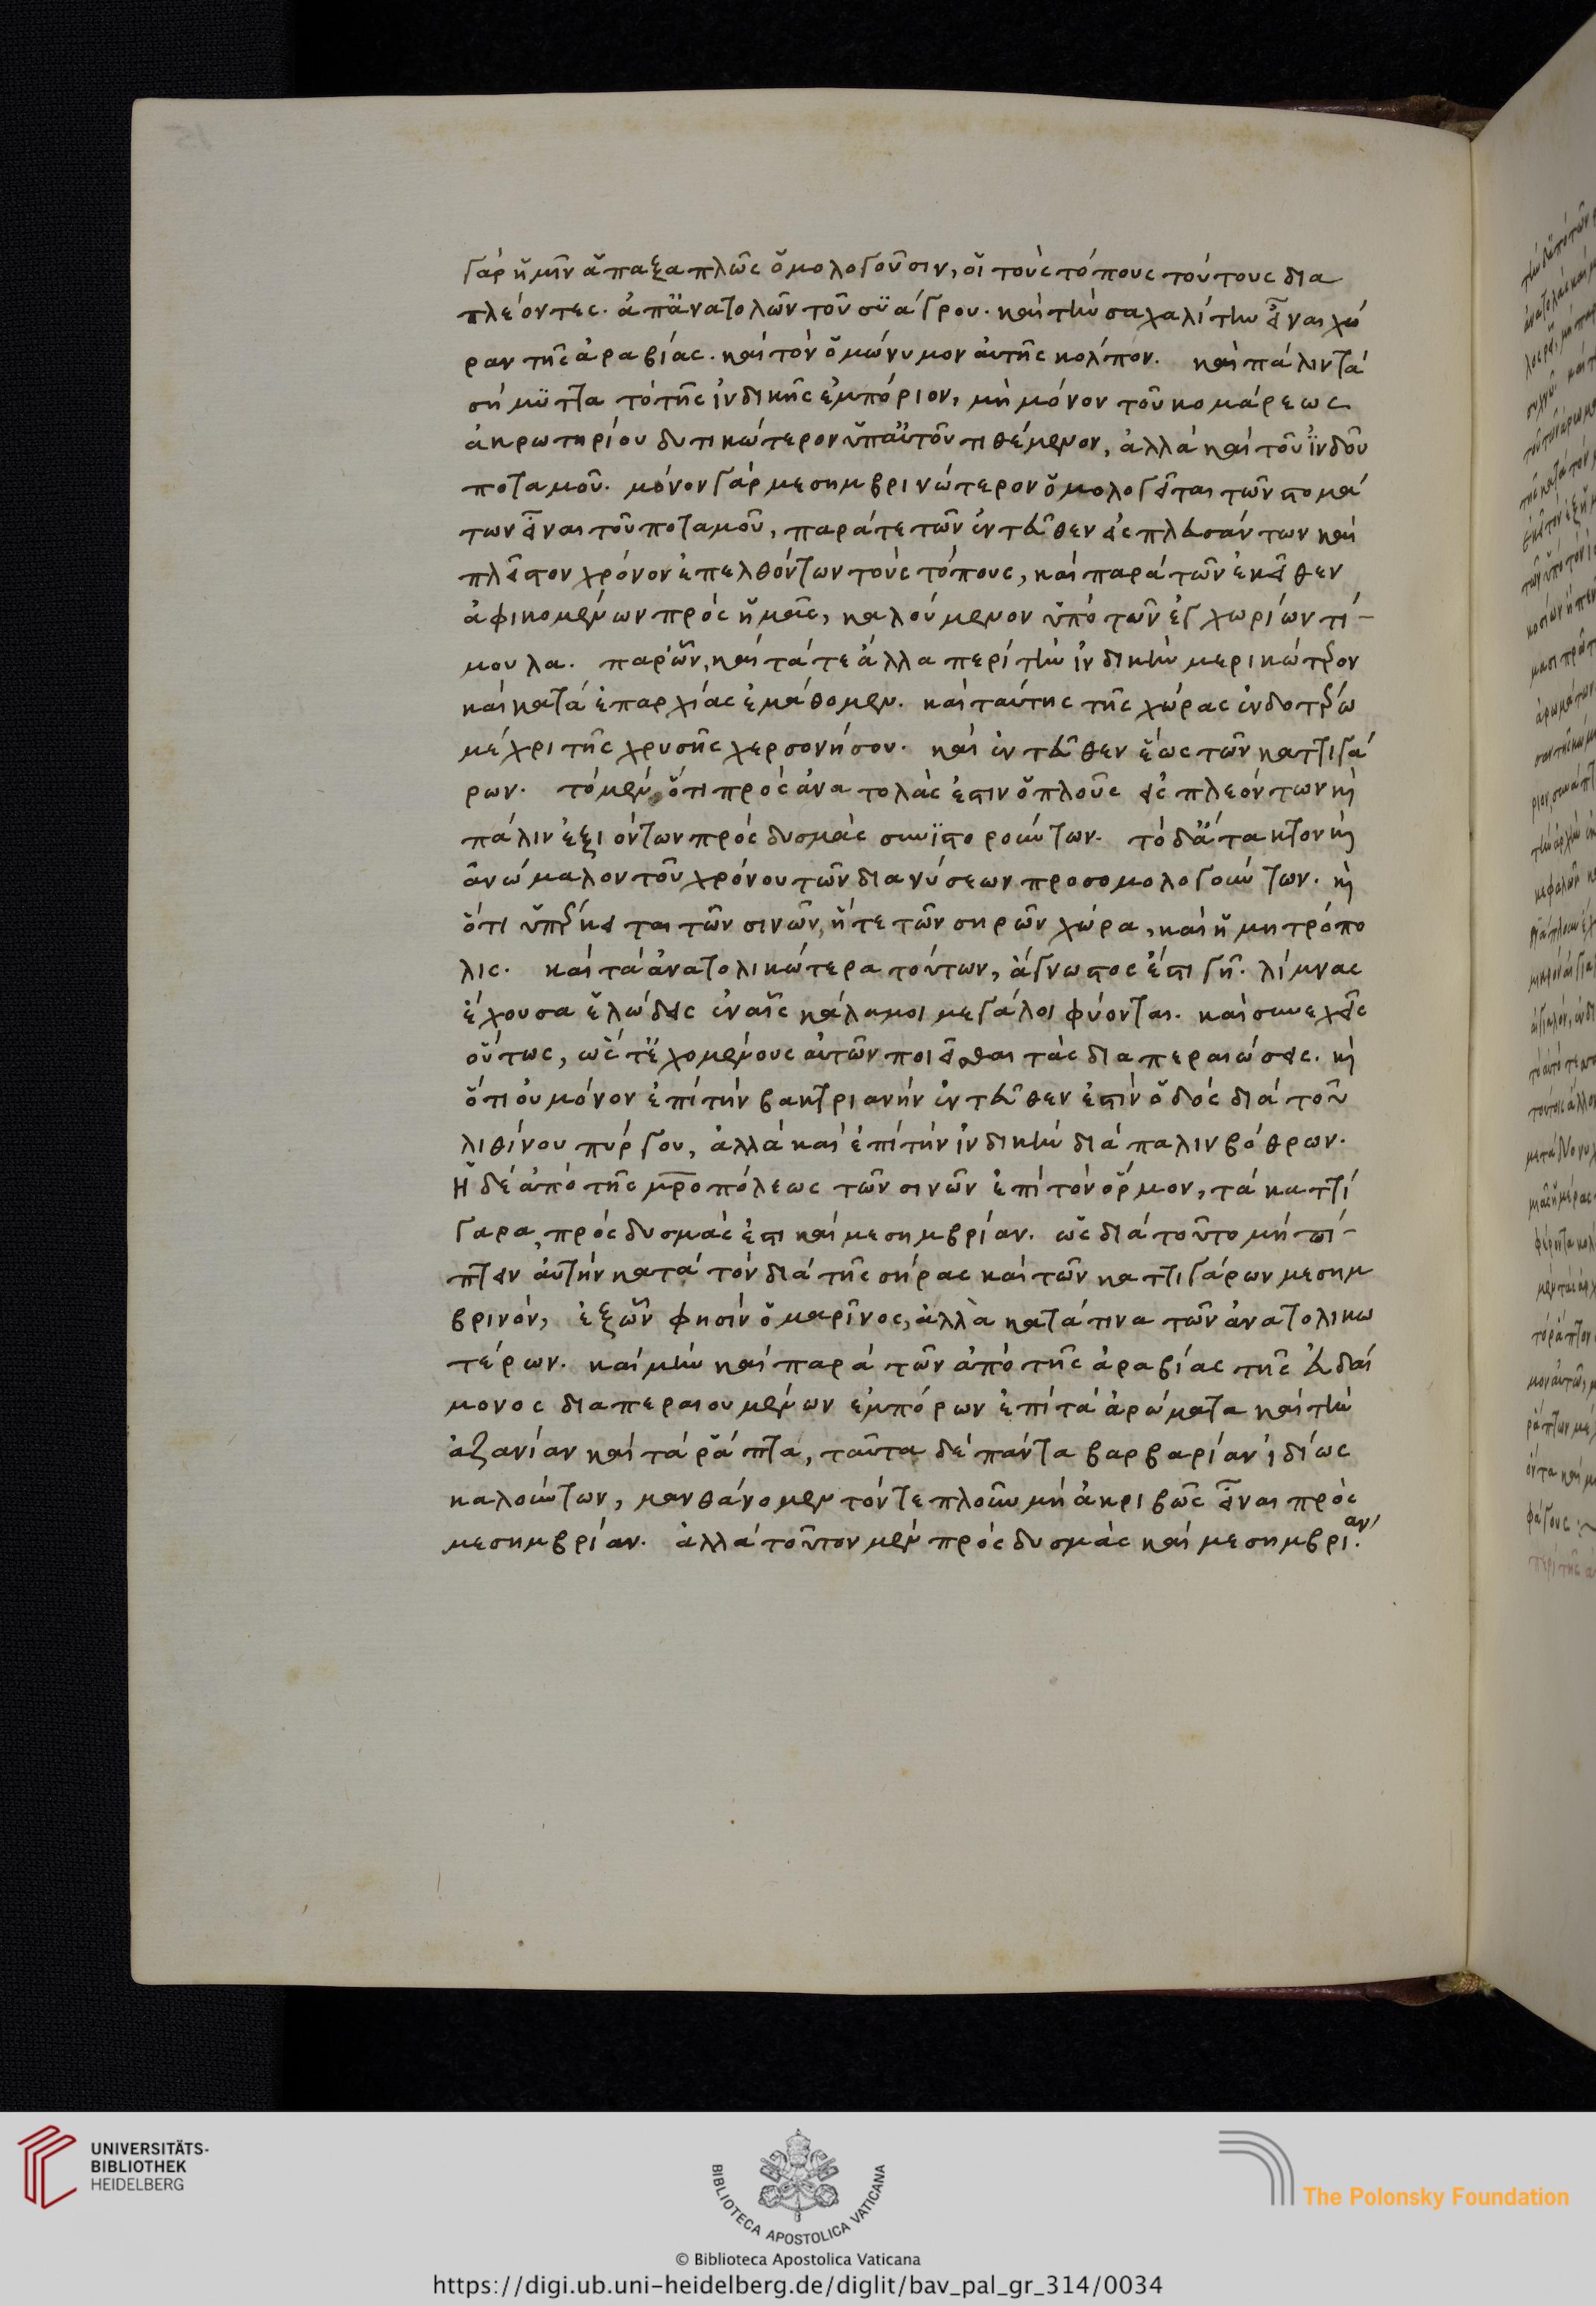 γὰρ ἡμῖν ἅπαξαπλῶς ὁμολογοῦσιν, οἱ τοὺς τόπους τούτους δια
πλέοντες. ἀπ' ἀνατολῶν τοῦ συάγρου. καὶ τὴν σαχαλίτην εἶναι χώ
ραν τῆς ἀραβίας. καὶ τὸν ὁμώνυμον αὐτῆς κόλπον. καὶ πάλιν τὰ
σήμυττα τὸ τῆς ἰνδικῆς ἐμπόριον, μὴ μόνον τοῦ κομάρεως
ἀκρωτηρίου δυτικώτερον ὑπ' αὐτοῦ τιθέμενον, ἀλλὰ καὶ τοῦ ἰνδοῦ
ποταμοῦ. μόνον γὰρ μεσημβρινώτερον ὁμολογεῖται τῶν στομά
των εἶναι τοῦ ποταμοῦ, παρά τε τῶν ἐντεῦθεν εἰσπλευσάντων καὶ
πλεῖστον χρόνον ἐπελθόντων τοὺς τόπους, καὶ παρὰ τῶν ἐκεῖθεν
ἀφικομένων πρὸς ἡμᾶς, καλούμενον ὑπὸ τῶν ἐγχωρίων τί-
μουλα. παρ' ὧν, καὶ τά τε ἄλλα περὶ τὴν ἰνδικὴν μερικώτερον
καὶ κατὰ ἐπαρχίας ἐμάθομεν. καὶ ταύτης τῆς χώρας ἐνδοτέρω
μέχρι τῆς χρυσῆς χερσονήσου. καὶ ἐντεῦθεν ἕως τῶν καττιγά
ρων. τὸ μὲν, ὅτι πρὸς ἀνατολάς ἐστιν ὁ πλοῦς εἰσπλεόντων καὶ
πάλιν ἐξιόντων πρὸς δυσμὰς συνιστορούντων. τὸ δ' ἄτακτον καὶ
ἀνώμαλον τοῦ χρόνου τῶν διανύσεων προσομολογούντων. καὶ
ὅτι ὑπέρκειται τῶν σινῶν, ἥ τε τῶν σηρῶν χώρα, καὶ ἡ μητρόπο
λις. καὶ τὰ ἀνατολικώτερα τούτων, ἄγνωστός ἐστι γῆ. λίμνας
ἔχουσα ἑλώδεις ἐν αἷς κάλαμοι μεγάλοι φύονται. καὶ συνεχεῖς
οὕτως, ὥστ' ἐχομένους αὐτῶν ποιεῖσθαι τὰς διαπεραιώσεις. καὶ
ὅτι οὐ μόνον ἐπὶ τὴν βακτριανὴν ἐντεῦθέν ἐστιν ὁδὸς διὰ τοῦ
λιθίνου πύργου, ἀλλὰ καὶ ἐπὶ τὴν ἰνδικὴν διὰ παλινβόθρων.
Ἡ δὲ ἀπὸ τῆς μροπόλεως τῶν σινῶν ἐπὶ τὸν ὅρμον, τὰ καττί
γαρα, πρὸς δυσμάς ἐστι καὶ μεσημβρίαν. ὡς διὰ τοῦτο μὴ πί-
πτειν αὐτὴν κατὰ τὸν διὰ τῆς σήρας καὶ τῶν καττιγάρων μεσημ
βρινόν, ἐξ ὧν φησὶν ὁ μαρῖνος, ἀλλὰ κατά τινα τῶν ἀνατολικω
τέρων. καὶ μὴν καὶ παρὰ τῶν ἀπὸ τῆς ἀραβίας τῆς εὐδαί
μονος διαπεραιουμένων ἐμπόρων ἐπὶ τὰ ἀρώματα καὶ τὴν
ἀζανίαν καὶ τὰ ῥάπτα, ταῦτα δὲ πάντα βαρβαρίαν ἰδίως
καλούντων, μανθάνομεν τόν τε πλοῦν μὴ ἀκριβῶς εἶναι πρὸς
μεσημβρίαν. ἀλλὰ τοῦτον μὲν πρὸς δυσμὰς καὶ μεσημβρίαν.
UNIVERSITÄTS-
BIBLIOTHEK
HEIDELBERG
BIBLIOTECA APOSTOLICA VATICANA
The Polonsky Foundation
© Biblioteca Apostolica Vaticana
https://digi.ub.uni-heidelberg.de/diglit/bav_pal_gr_314/0034